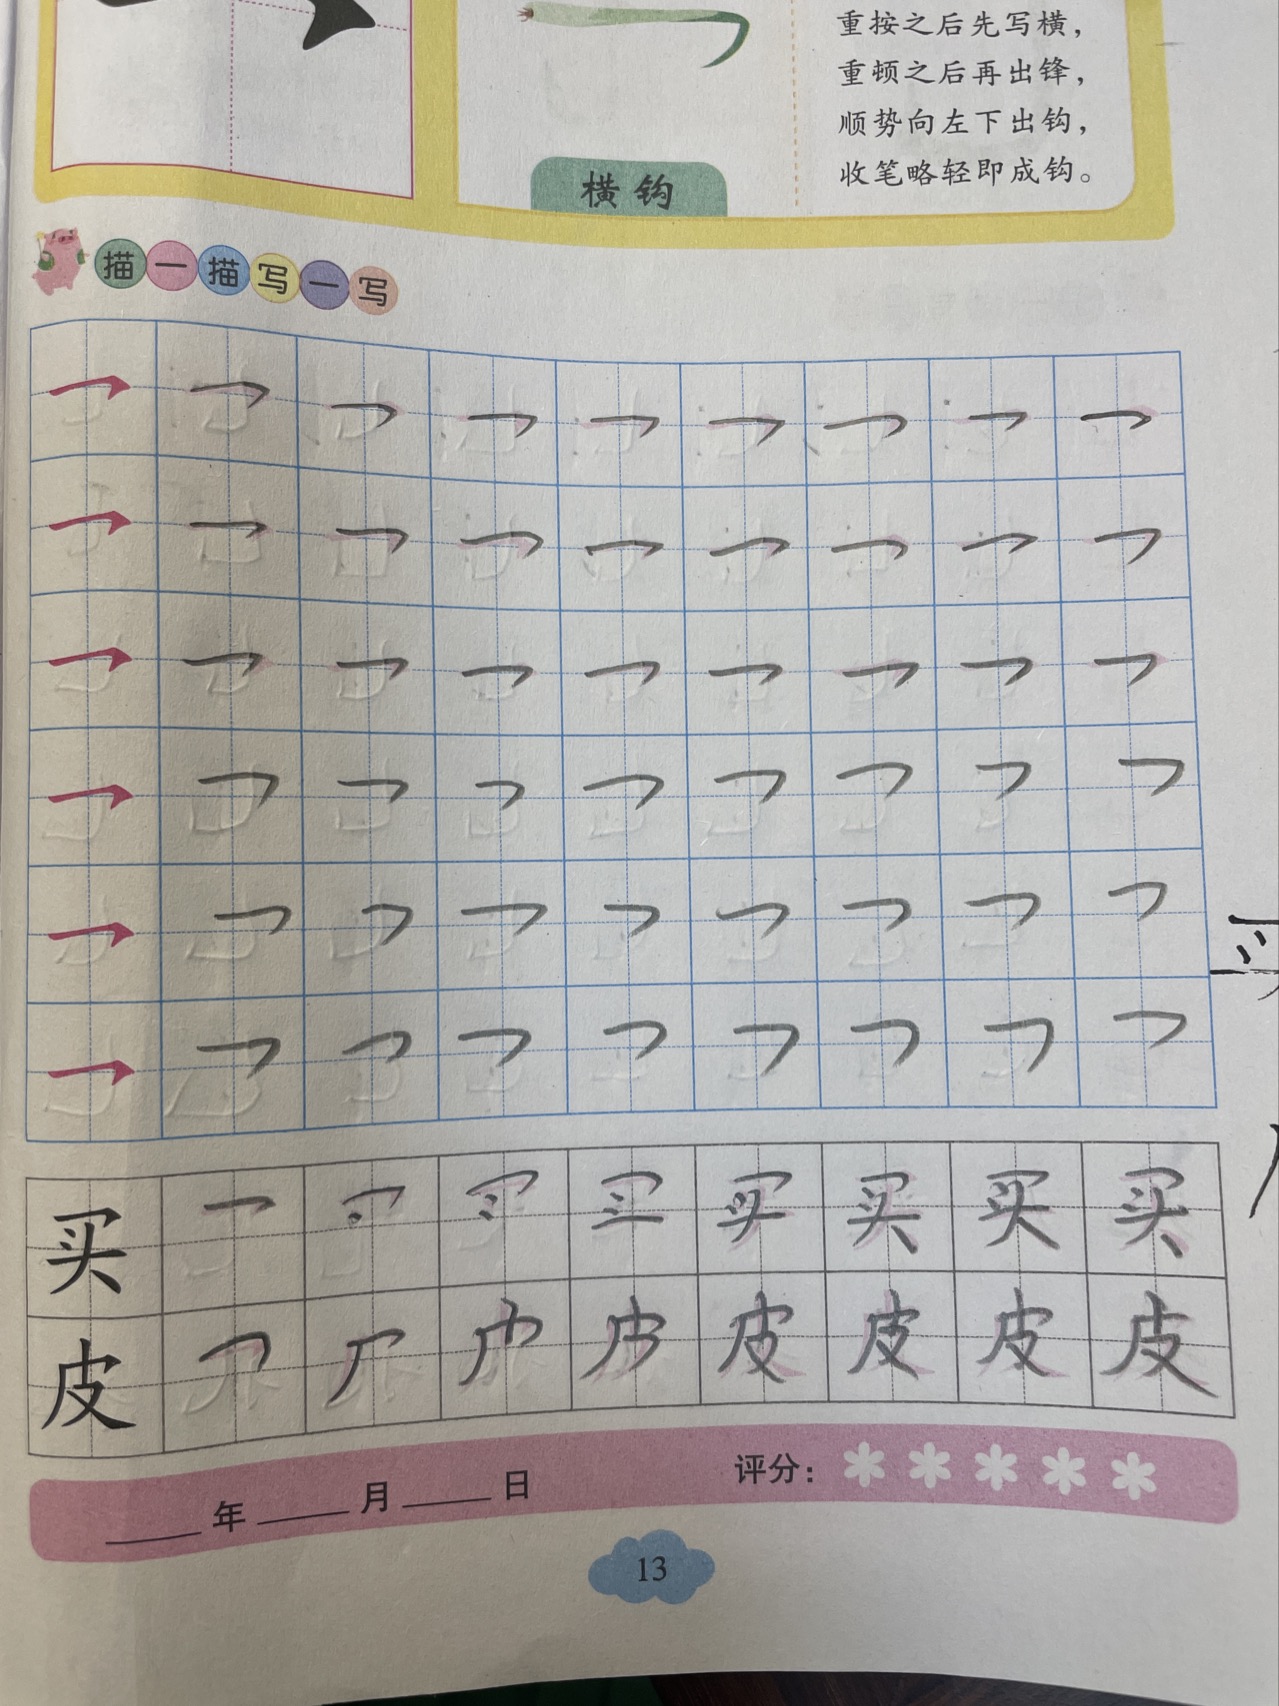 重按之后先写横，
重顿之后再出锋，
顺势向左下出钩，
收笔略轻即成钩。
横钩
描一描写一写
买 乛 买 买 买 买
皮 皮 皮 皮 皮
年 月 日 评分：
13